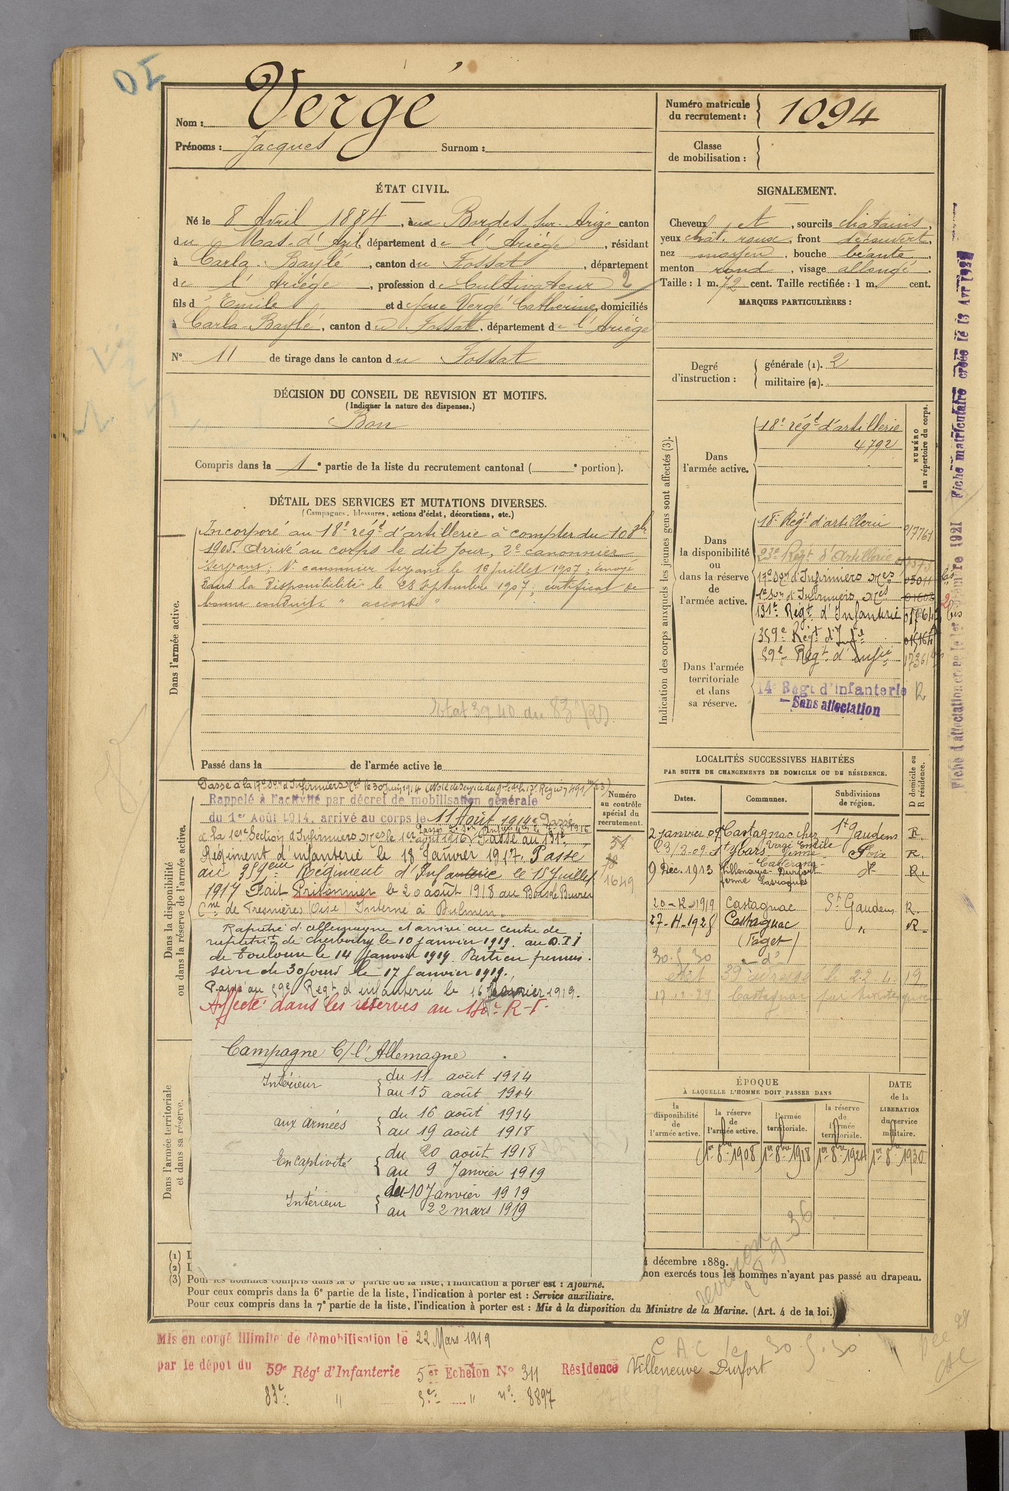 Nom : Vergé
Prénoms : Jacques Surnom :
Numéro matricule
du recrutement : 1094
Classe
de mobilisation :
ÉTAT CIVIL.
Né le 8 Avril 1884, aux Bordes sur Arize canton
du Mas-d'Azil, département de l'Ariège, résidant
à Carla-Baylé, canton du Fossat, département
de l'Ariège, profession de Cultivateur 2
fils d'Emile et de feue Vergé Catherine, domiciliés
à Carla-Baylé, canton du Fossat, département de l'Ariège
N° 11 de tirage dans le canton du Fossat
SIGNALEMENT.
Cheveux et, sourcils chatains,
yeux chât. roux, front découvert,
nez moyen, bouche béante,
menton rond, visage allongé.
Taille : 1 m. 72 cent. Taille rectifiée : 1 m. cent.
MARQUES PARTICULIÈRES :
Degré
d'instruction :
générale (1). 2
militaire (2).
DÉCISION DU CONSEIL DE REVISION ET MOTIFS.
(Indiquer la nature des dispenses.)
Bon
Compris dans la 1e partie de la liste du recrutement cantonal ( e portion).
DÉTAIL DES SERVICES ET MUTATIONS DIVERSES.
(Campagnes, blessures, actions d'éclat, décorations, etc.)
Dans l'armée active.
Incorporé au 18e régt d'artillerie à compter du 10 8bre
1905. Arrivé au corps le dit jour, 2e canonnier
servant; 1er canonnier servant le 16 juillet 1907; envoyé
dans la disponibilité le 28 septembre 1907; certificat de
bonne conduite " accordé "
Passé dans la de l'armée active le
Indication des corps auxquels les jeunes gens sont affectés (3).
NUMÉRO
au répertoire du corps.
Dans
l'armée active.
18e régt d'artillerie
4792
Dans
la disponibilité
ou
dans la réserve
de
l'armée active.
18e Régt d'artillerie
23e Régt d'Artillerie
17e Son d'Infirmiers
1re Son d'Infirmiers
131e Régt d'Infanterie
359e Régt d'Infie
59e Régt d'Infie
Dans l'armée
territoriale
et dans
sa réserve.
14e Régt d'Infanterie R
Sans affectation
Fiche matriculaire créée le 13 Avr 193
Dans la disponibilité
ou dans la réserve de l'armée active.
Numéro
au contrôle
spécial du
recrutement.
1649
Rappelé à l'activité par décret de mobilisation générale
du 1er Août 1914, arrivé au corps le 11 Août 1914. Passé
à la 1ère Section d'Infirmiers
Passé au 131e
Régiment d'infanterie le 18 Janvier 1917. Passé
au 359ème Régiment d'Infanterie le 15 Juillet
1917 Fait Prisonnier le 20 août 1918 au Bois de
Interné à
Rapatrié d'allemagne et arrivé au centre de
de cherbourg le 10 janvier 1919. au D.I
de Toulouse le 14 Janvier 1919. Parti en permis-
sion de 30 jours le 17 Janvier 1919.
Passé au 59e Régt d'infanterie le 16 1919.
Affecté dans les réserves au R.I.
Campagne C/ l'Allemagne
Intérieur du 11 août 1914
au 15 août 1914
aux armées du 16 août 1914
au 19 août 1918
En captivité du 20 août 1918
au 9 Janvier 1919
Intérieur du 10 Janvier 1919
au 22 mars 1919
Dans l'armée territoriale
et dans sa réserve.
LOCALITÉS SUCCESSIVES HABITÉES
PAR SUITE DE CHANGEMENTS DE DOMICILE OU DE RÉSIDENCE.
Dates. Communes. Subdivisions
de région. D domicile ou
R résidence.
2 janvier 09 Castagnac chez Vergé Emile St Gaudens R.
23/3.09 St Ybars Foix R.
9 Déc. 1913 Villeneuve-Durfort R.
20-12-1919 Castagnac St Gaudens R.
27-11-1928 Castagnac " R.
(Faget)
30.5.30 d°
ÉPOQUE
À LAQUELLE L'HOMME DOIT PASSER DANS
la
disponibilité
de
l'armée active. la réserve
de
l'armée active. l'armée
territoriale. la réserve
de
l'armée
territoriale. DATE
de la
LIBÉRATION
du service
militaire.
1er 8bre 1908 1er 8bre 1918 1er 8bre 1924 1er 8bre 1930
(1)
(2)
décembre 1889.
non exercés tous les hommes n'ayant pas passé au drapeau.
(3) Pour les hommes compris dans la 5e partie de la liste, l'indication à porter est : Ajourné.
Pour ceux compris dans la 6e partie de la liste, l'indication à porter est : Service auxiliaire.
Pour ceux compris dans la 7e partie de la liste, l'indication à porter est : Mis à la disposition du Ministre de la Marine. (Art. 4 de la loi.)
revision 28-9-36
CAC le 30.5.30
Mis en congé illimité de démobilisation le 22 Mars 1919
par le dépôt du 59e Régt d'Infanterie 5e Echelon N° 311 Résidence Villeneuve Durfort
83e " 5e " n° 8897